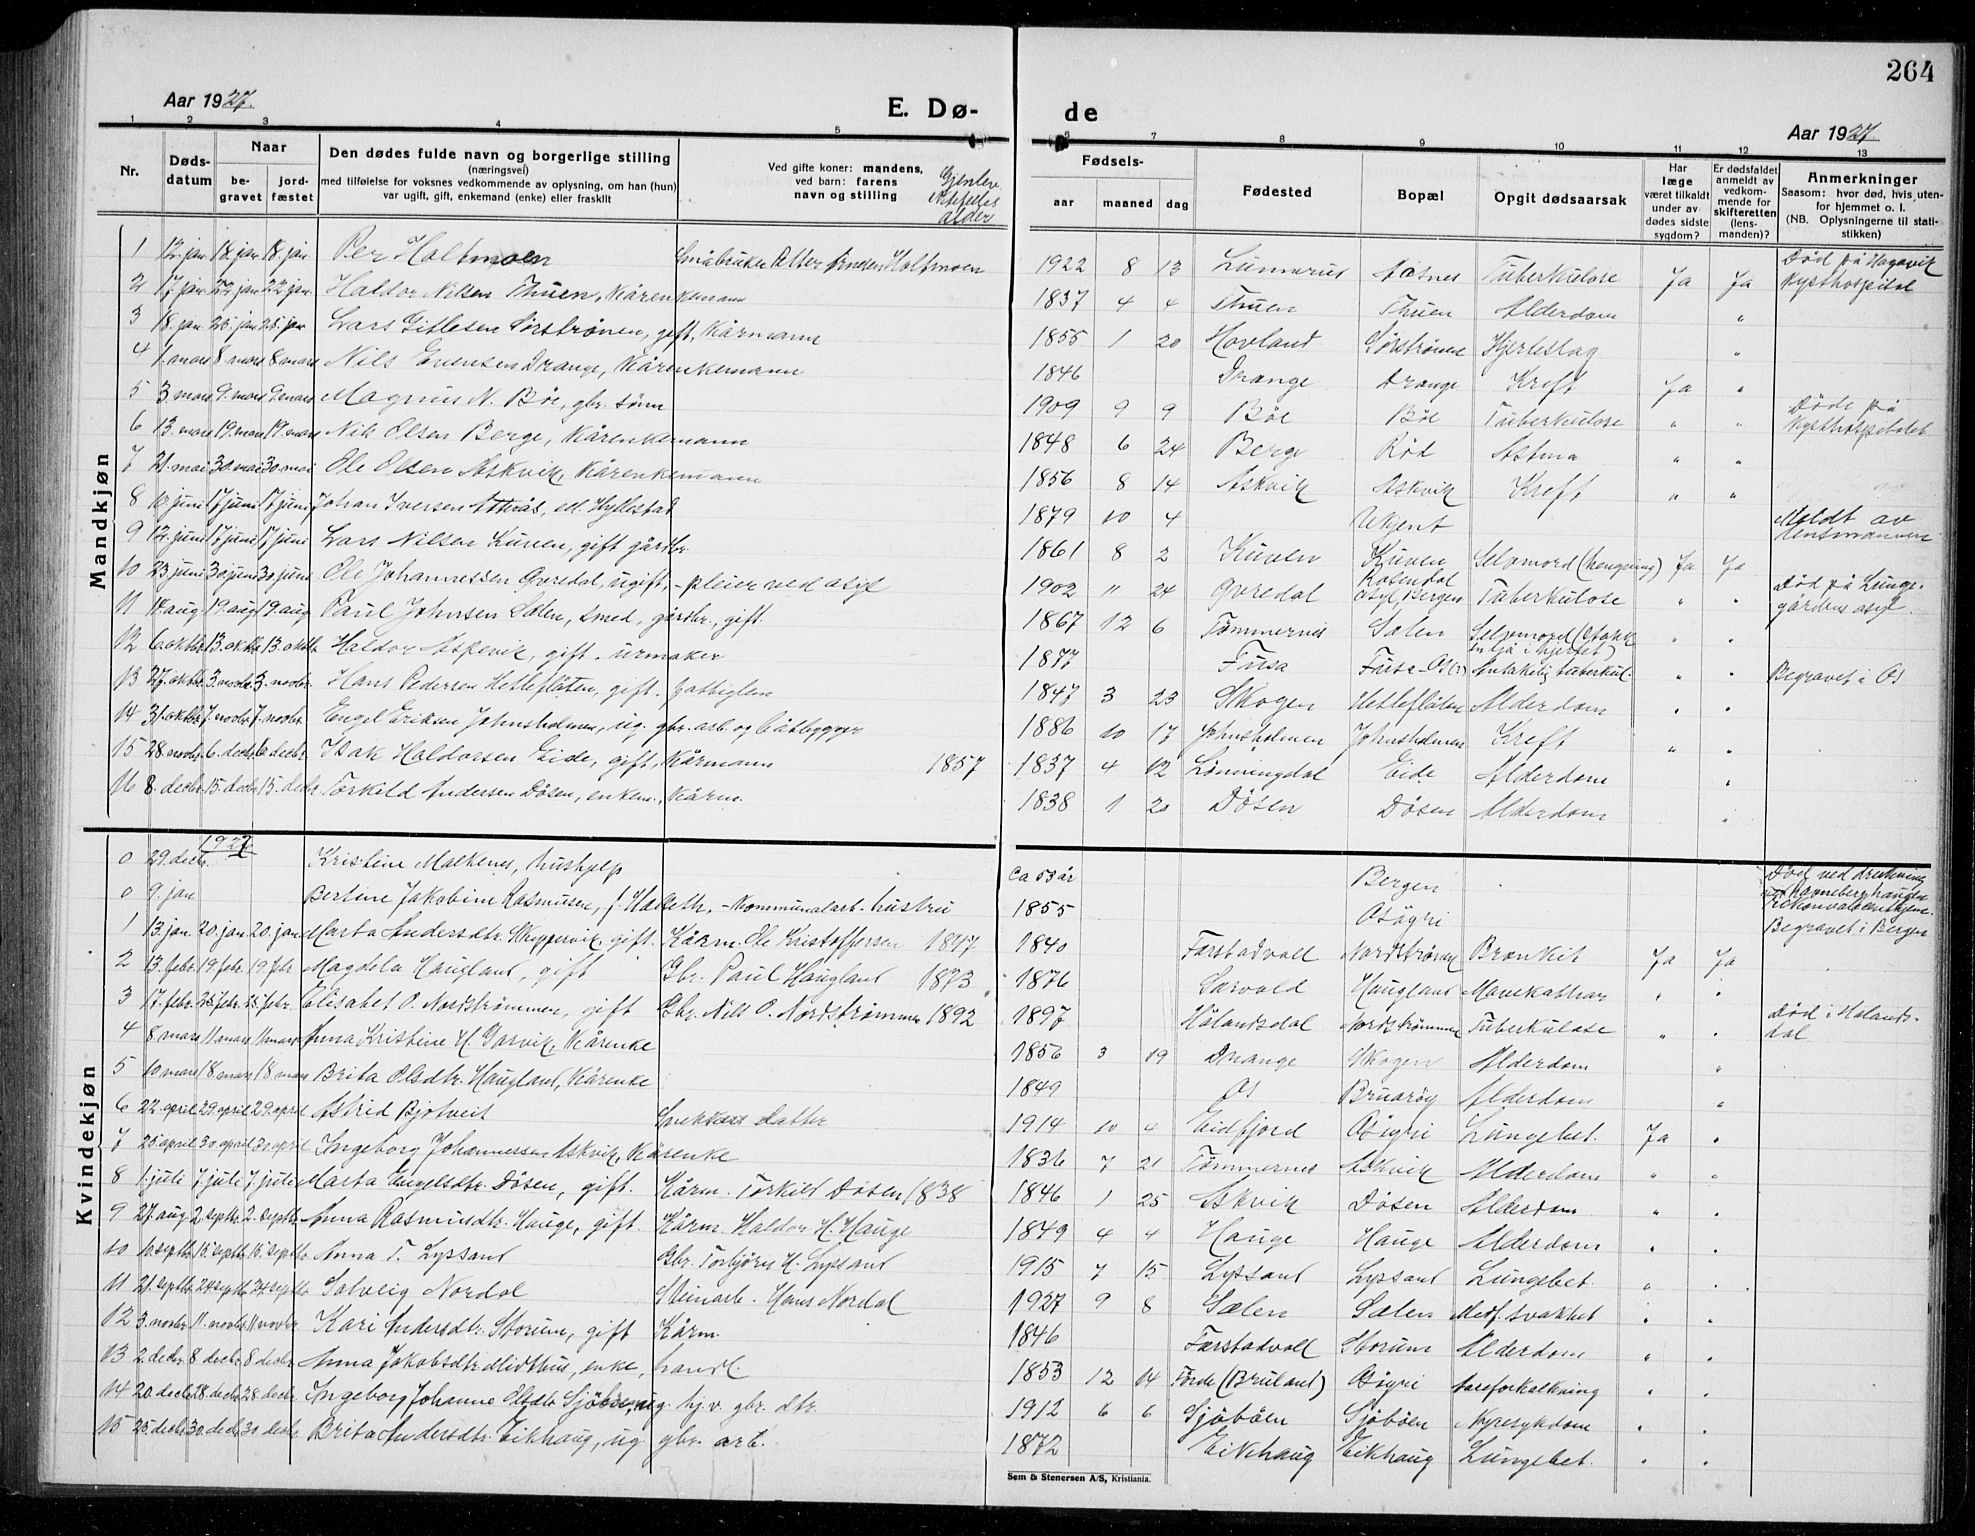 264
Aar 1927.
E. Dø-
de
Aar 1927.
1 2 3 4 5 6 7 8 9 10 11 12 13
Nr.
Døds-
datum
Naar
be-
gravet
jord-
fæstet
Den dødes fulde navn og borgerlige stilling
(næringsvei)
med tilføielse for voksnes vedkommende av oplysning, om han (hun)
var ugift, gift, enkemand (enke) eller fraskilt
Ved gifte koner: mandens,
ved barn: farens
navn og stilling
alder
Fødsels-
aar maaned dag
Fødested
Bopæl
Opgit dødsaarsak
Har
læge
været tilkaldt
under av-
dødes sidste
sygdom?
Er dødsfaldet
anmeldt av
vedkom-
mende for
skifteretten
(lens-
manden)?
Anmerkninger
Saasom: hvor død, hvis uten-
for hjemmet o. l.
(NB. Oplysningerne til stati-
stikken)
Mandkjøn
1 12. jan 18. jan 18. jan Per Holtmoen Småbruker Holtmoen 1922 8 13 Aasnes Tuberkulose Ja Ja Død på Hagavik
Kysthospital
2 17. jan 22. jan 22. jan Haldor Nilsen Thuen, Kårenkemann 1837 4 4 Thuen Thuen Alderdom "
3 18. jan 25. jan 25. jan Lars Gitlesen Sørstrønen, gift, Kårmann 1855 1 20 Hovland Sørstrønen Hjerteslag "
4 1. mars 8 mars 8 mars Nils Drange, Kårenkemann 1846 Drange Drange Kreft Ja "
5 3 mars 9. mars 9 mars Magnus N. Bøe, gbr. sønn 1909 9 9 Bøe Bøe Tuberkulose " " Døde på
Kysthospitalet
6 13. mars 19. mars 19. mars Nils Olsen Berge, Kårenkemann 1848 6 24 Berge Rød Astma " "
7 21. mai 30. mai 30. mai Ole Olsen Askvik, Kårenkemann 1856 8 14 Askvik Askvik Kreft " "
8 10. juni 17 juni 17 juni Johan Iversen Hyllestad 1879 10 4 Ukjent Meldt av
lensmannen
9 12. juni 17 juni 17 juni Lars Nilsen Kuven, gift gårdbr. 1861 8 2 Kuven Kuven Selvmord (hengning) Ja Ja
10 23 juni 30 juni 30 juni Ole Johannessen Øvredal, ugift, - pleier ved asyl 1902 11 24 Øvredal Rosendal
asyl, Bergen Tuberkulose " " Død på Lunge-
gårdens asyl.
11 11. aug 19. aug 19. aug Paul Johnsen Sælen, smed, gårdbr., gift. 1867 12 6 Tømmernes Sælen Selvmord " "
12 6. oktbr 13. oktbr 13. oktbr Haldor Aspevik, gift. urmaker 1877 Fusa tuberkul. " " Begravet i Os
13 27. oktbr 3. novbr 3. novbr. Hans Pedersen Hetlefløten, gift. fattiglem 1847 3 23 Skogen Hetlefløten Alderdom " "
14 31. oktbr 7. novbr 7. novbr. Engel Eriksen Johnsholmen, ug. gbr. arb. og båtbygger 1886 10 17 Johnsholmen Johnsholmen Kreft " "
15 28. novbr 6. decbr 6 decbr Isak Haldorsen Eide, gift, Kårmann 1857 1837 4 12 Lønningdal Eide Alderdom "
16 8. decbr 15. decbr 15. decbr. Torkild Andersen Døsen, enkem., Kårm. 1838 1 20 Døsen Døsen Alderdom "
Kvindekjøn
1927
0 29. decbr. Kristine Malkenes, hushjelp ca 53 år Bergen Død ved drukning
0 9. jan Bertine Jakobine Rasmusen, - kommunalarb. hustru 1855 Osøyri
1 13. jan. 20. jan 20. jan Marta Andersdtr. Skeppervik, gift. Kårm. Ole Kristoffersen 1847 1840 Færstadvoll Nordstrønen Bronkit Ja Ja Begravet i Bergen
2 13. febr. 19 febr. 19 febr Magdela Haugland, gift Gbr. Paul Haugland 1873 1876 Særvold Haugland Mavekatar " "
3 17. febr. 25 febr. 25 febr. Elisabet O. Nordstrømmen, gift Gbr. Nils O. Nordstrømmen 1892 1897 Hålandsdal Nordstrømmen Tuberkulose " " Død i Hålands-
dal
4 8 mars 11 mars 11 mars Anna Kristine H. Garvik, Kårenke 1856 3 19 Drange Skogen Alderdom "
5 10 mars 18 mars 18 mars Brita Olsdtr. Haugland, Kårenke 1849 Os Bruarøy Alderdom "
6 22 april 29. april 29. april Astrid Bjotveit Snekkers datter 1914 10 4 Eidfjord Osøyri Lungebet. Ja "
7 25 april 30. april 30. april Ingeborg Johannessen Askvik, Kårenke 1836 7 21 Tømmernes Askvik Alderdom " "
8 1. juli 7 juli 7 juli Marta Engelsdtr. Døsen, gift. Kårm. Torkild Døsen 1838 1846 1 25 Askvik Døsen Alderdom " "
9 27 aug 2. septbr. 2. septbr Anna Rasmusdtr. Hauge, gift. Kårm. Haldor H. Hauge 1849 4 4 Hauge Hauge Alderdom " "
10 10. septbr. 15. septbr 15. septbr Anna T. Lyssand Gbr. Torbjørn H. Lyssand 1915 7 15 Lyssand Lyssand Lungebet. " "
11 21. septbr 24 septbr 24 septbr Solveig Nordal Steinarb. Hans Nordal 1927 9 8 Sælen Sælen Medf. svakhet " "
12 3. novbr 11. novbr 11 novbr Kari Andersdtr. Storum, gift Kårm. 1846 Færstadvoll Storum Alderdom " "
13 2. decbr 8 decbr 8 decbr. Anna Jakobsdtr. Midthus, enke, handl. 1853 12 14 Førde (Bruland) Osøyri Åreforkalkning " "
14 20. decbr 28. decbr 28. decbr. Ingeborg Johanne Olsdtr Sjøbøen, ug. hj. v. gbr. dtr. 1912 6 6 Sjøbøen Sjøbøen Nyresykdom " "
15 25. decbr 30. decbr 30 decbr Brita Andersdtr. Eikhaug, ug. gbr. arb. 1872 Eikhaug Eikhaug Lungebet. " "
Sem & Stenersen A/S, Kristiania.